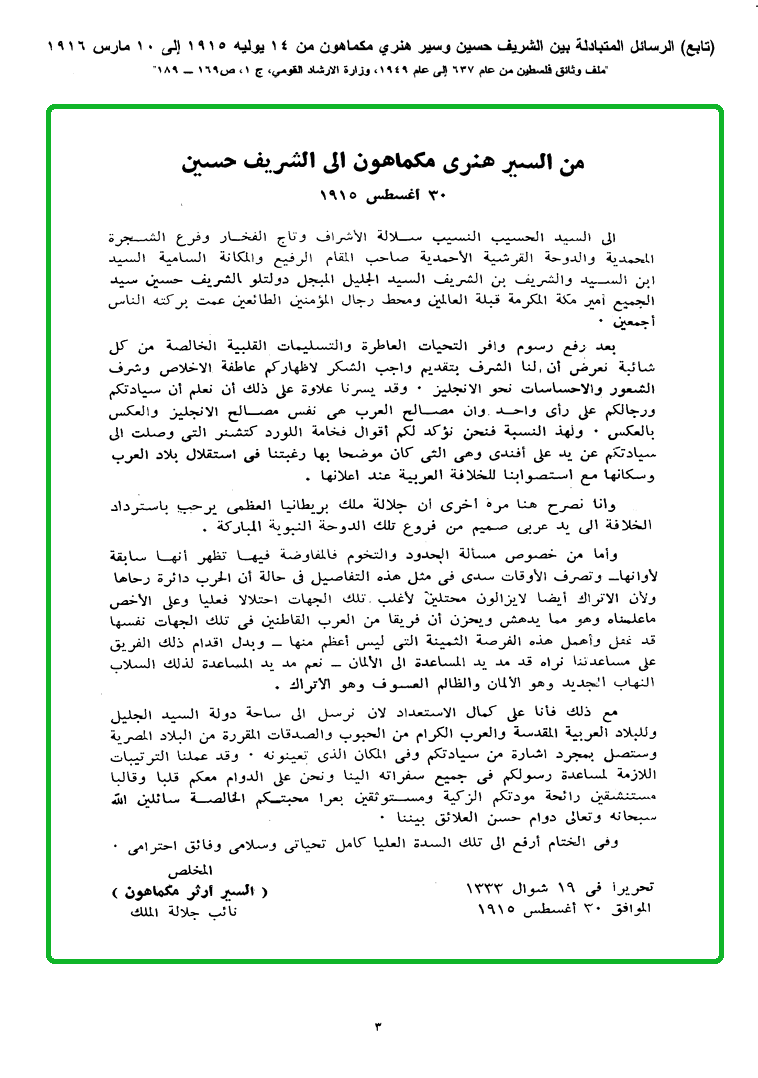 (تابع) الرسائل المتبادلة بين الشريف حسين وسير هنري مكماهون من ١٤ يوليه ١٩١٥ إلى ١٠ مارس ١٩١٦
"ملف وثائق فلسطين من عام ٦٣٧ إلى عام ١٩٤٩، وزارة الارشاد القومي، ج ١، ص١٦٩ ــ ١٨٩"
من السير هنرى مكماهون الى الشريف حسين
٣٠ أغسطس ١٩١٥
الى السيد الحسيب النسيب سلالة الأشراف وتاج الفخار وفرع الشجرة
المحمدية والدوحة القرشية الأحمدية صاحب المقام الرفيع والمكانة السامية السيد
ابن السيد والشريف بن الشريف السيد الجليل المبجل دولتلو الشريف حسين سيد
الجميع أمير مكة المكرمة قبلة العالمين ومحط رجال المؤمنين الطائعين عمت بركته الناس
أجمعين ٠
بعد رفع رسوم وافر التحيات العاطرة والتسليمات القلبية الخالصة من كل
شائبة نعرض أن لنا الشرف بتقديم واجب الشكر لاظهاركم عاطفة الاخلاص وشرف
الشعور والاحساسات نحو الانجليز ٠ وقد يسرنا علاوة على ذلك أن نعلم أن سيادتكم
ورجالكم على رأى واحد وان مصالح العرب هى نفس مصالح الانجليز والعكس
بالعكس ٠ ولهذ النسبة فنحن نؤكد لكم أقوال فخامة اللورد كتشنر التى وصلت الى
سيادتكم عن يد على أفندى وهى التى كان موضحا بها رغبتنا فى استقلال بلاد العرب
وسكانها مع استصوابنا للخلافة العربية عند اعلانها ٠
وانا نصرح هنا مرة أخرى أن جلالة ملك بريطانيا العظمى يرحب باسترداد
الخلافة الى يد عربى صميم من فروع تلك الدوحة النبوية المباركة ٠
وأما من خصوص مسالة الحدود والتخوم فالمفاوضة فيها تظهر أنها سابقة
لأوانها ــ وتصرف الأوقات سدى فى مثل هذه التفاصيل فى حالة أن الحرب دائرة رحاها
ولأن الاتراك أيضا لايزالون محتلين لأغلب تلك الجهات احتلالا فعليا وعلى الأخص
ماعلمناه وهو مما يدهش ويحزن أن فريقا من العرب القاطنين فى تلك الجهات نفسها
قد غفل وأهمل هذه الفرصة الثمينة التى ليس أعظم منها ــ وبدل اقدام ذلك الفريق
على مساعدتنا نراه قد مد يد المساعدة الى الألمان ــ نعم مد يد المساعدة لذلك السلاب
النهاب الجديد وهو الألمان والظالم العسوف وهو الاتراك ٠
مع ذلك فأنا على كمال الاستعداد لان نرسل الى ساحة دولة السيد الجليل
وللبلاد العربية المقدسة والعرب الكرام من الحبوب والصدقات المقررة من البلاد المصرية
وستصل بمجرد اشارة من سيادتكم وفى المكان الذى تعينونه ٠ وقد عملنا الترتيبات
اللازمة لمساعدة رسولكم فى جميع سفراته الينا ونحن على الدوام معكم قلبا وقالبا
مستنشقين رائحة مودتكم الزكية ومستوثقين بعرا محبتكم الخالصة سائلين الله
سبحانه وتعالى دوام حسن العلائق بيننا ٠
وفى الختام أرفع الى تلك السدة العليا كامل تحياتى وسلامى وفائق احترامى ٠
المخلص
تحريرا فى ١٩ شوال ١٣٣٣ ( السير أرثر مكماهون )
الموافق ٣٠ أغسطس ١٩١٥ نائب جلالة الملك
٣